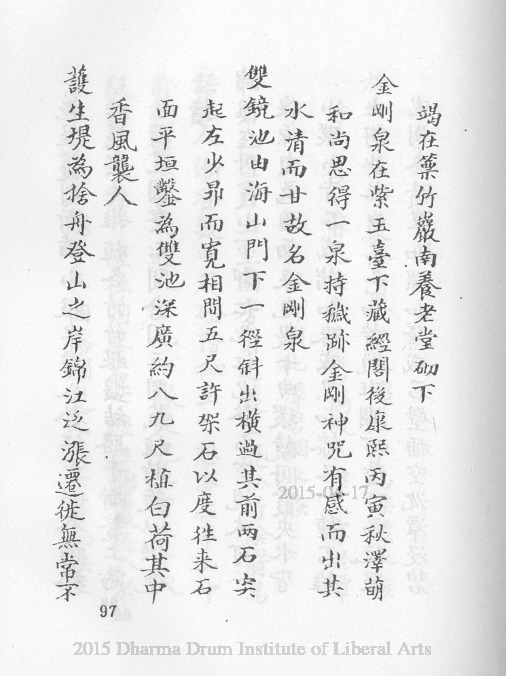 竭在葉竹巖南養老堂砌下
金剛泉在紫玉臺下藏經閣後康熙丙寅秋澤萌
和尚思得一泉持穢跡金剛神咒有感而出其
水清而甘故名金剛泉
雙鏡池由海山門下一徑斜出橫過其前兩石突
起左少昻而寬相間五尺許架石以度徃来石
面平垣鑿為雙池深廣約八九尺植白荷其中
香風襲人
護生堤為捨舟登山之岸錦江泛漲遷徙無常不
97
2015-04-17
2015 Dharma Drum Institute of Liberal Arts